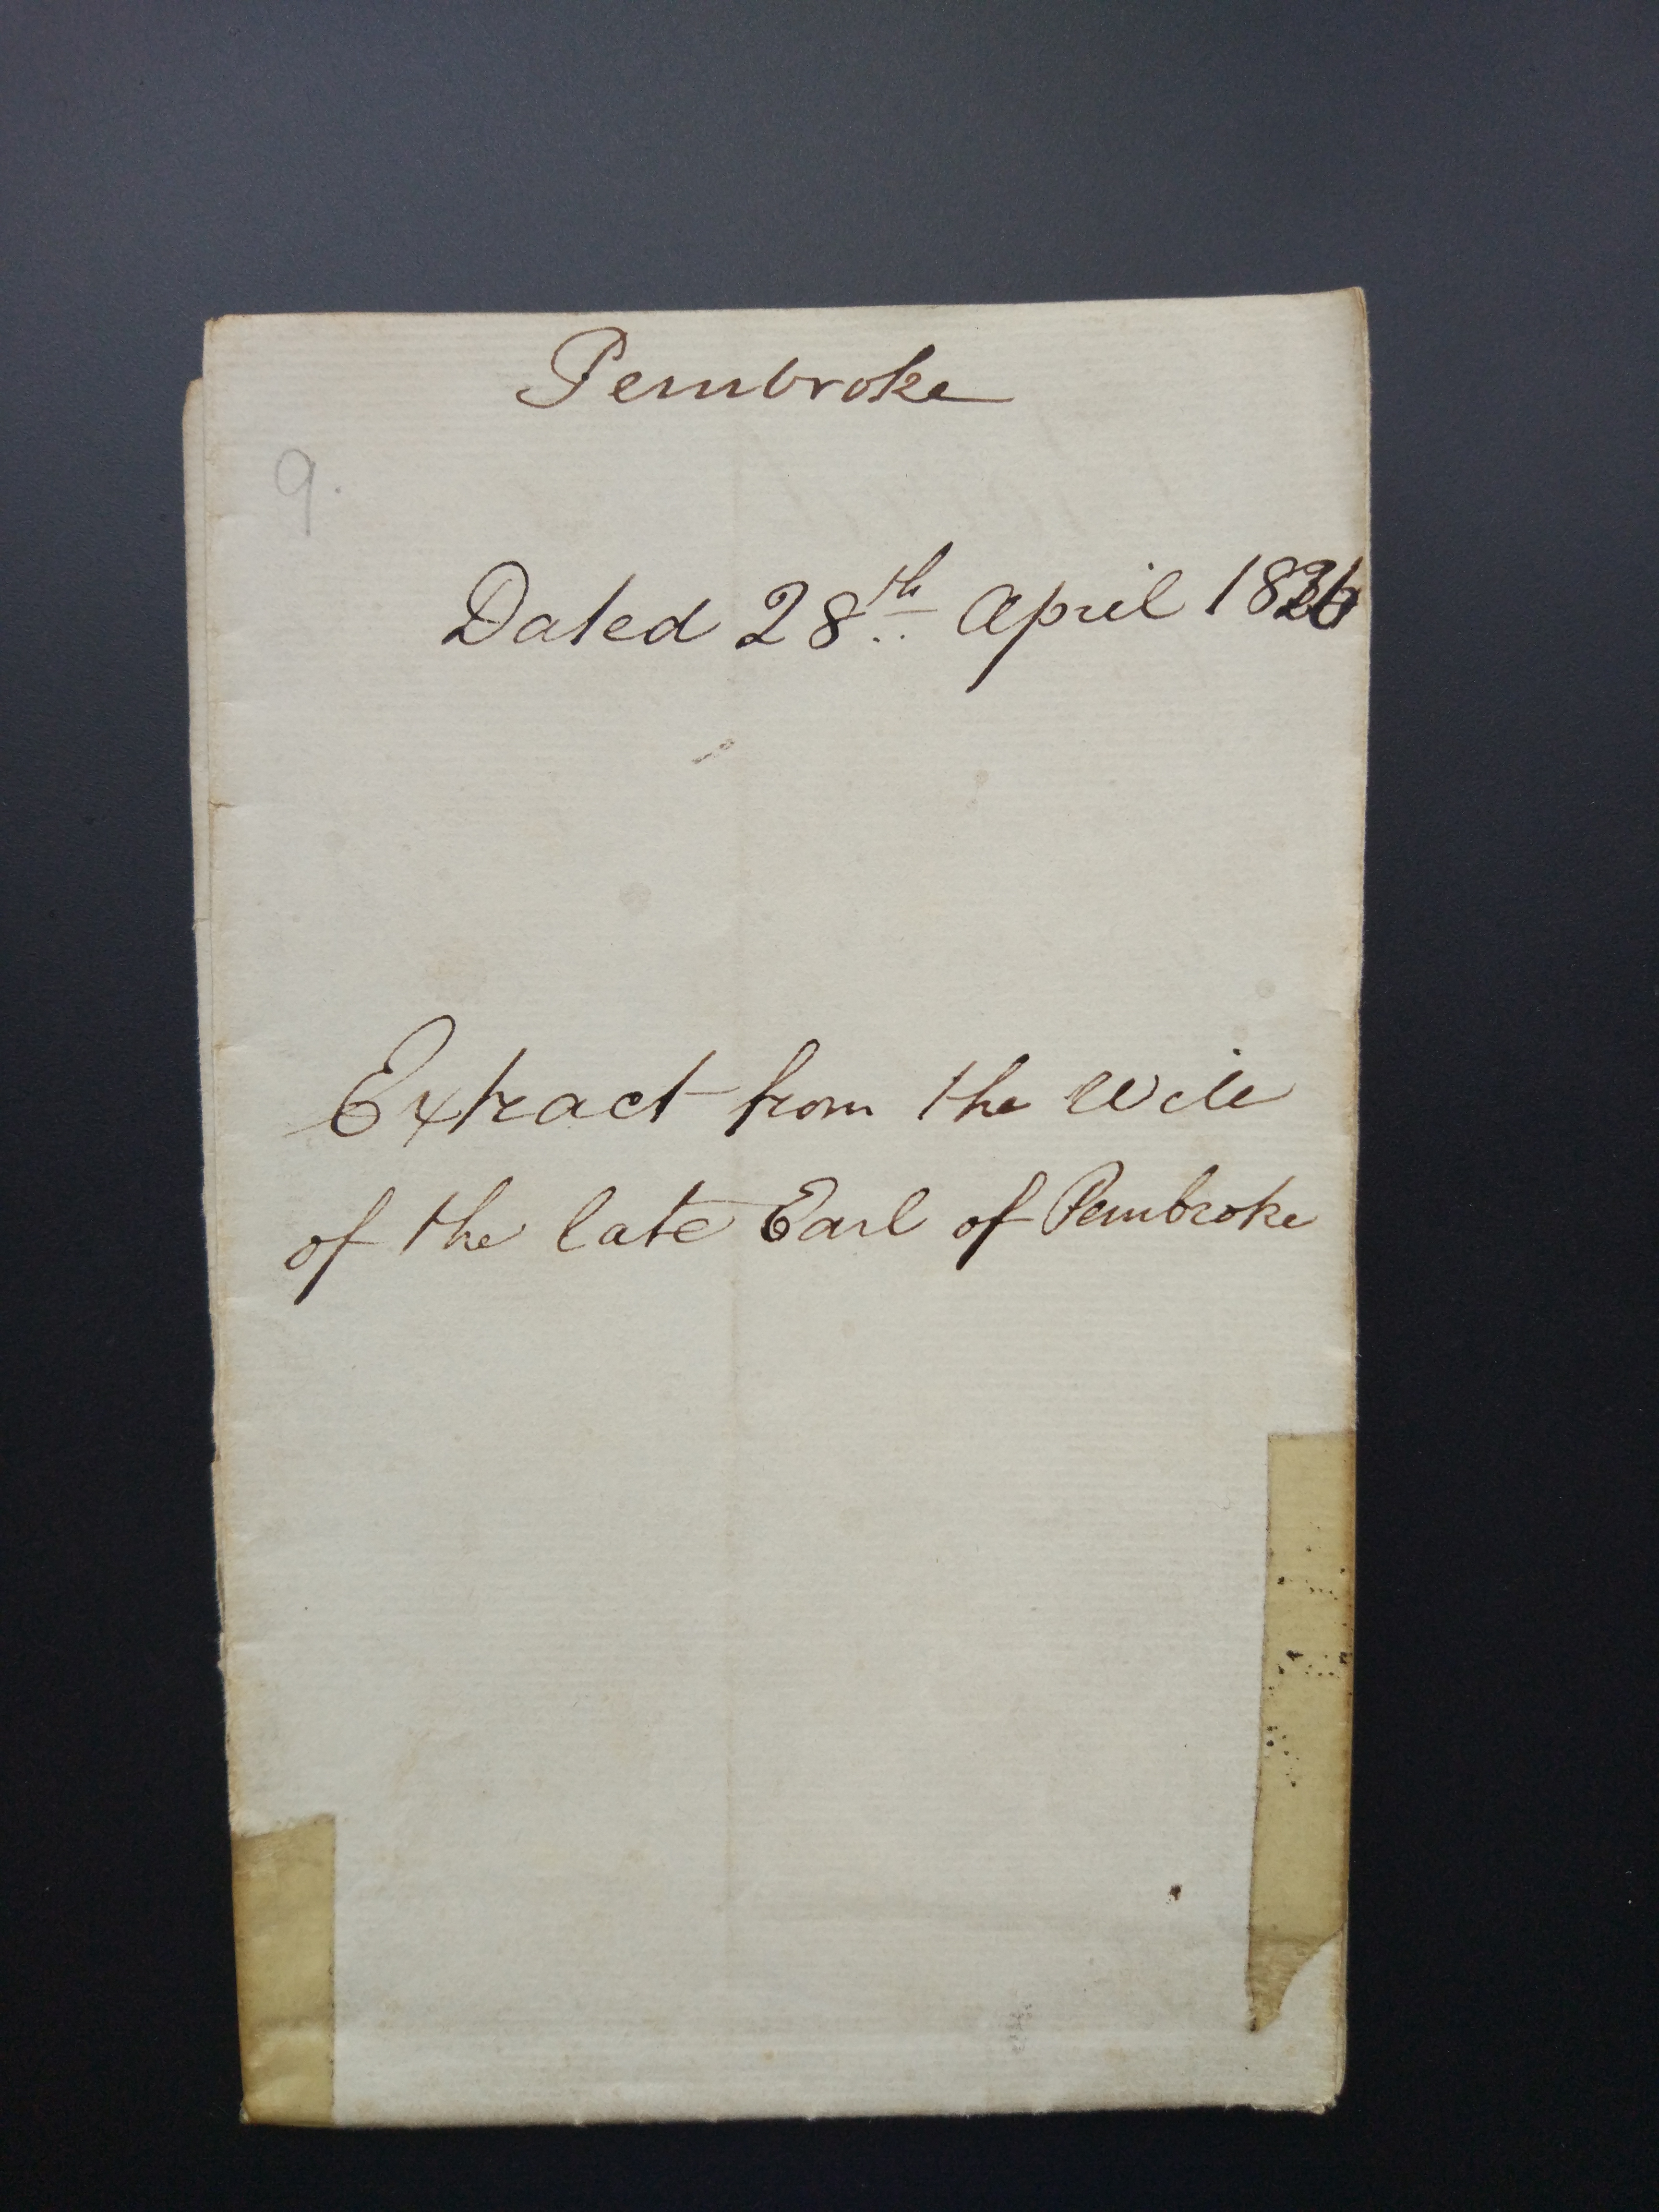 Pembroke
9.
Dated 28th April 1826
Extract from the Will
of the late Earl of Pembroke